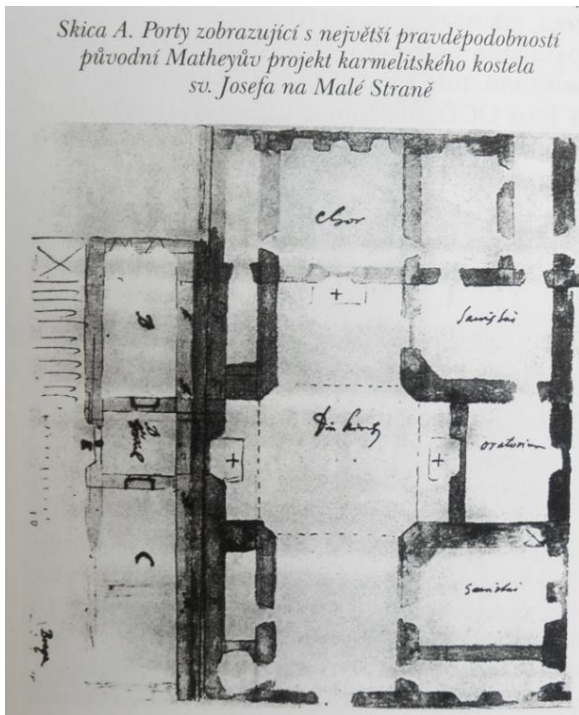 Skica A. Porty zobrazující s největší pravděpodobností
původní Matheyův projekt karmelitského kostela
sv. Josefa na Malé Straně
Chor
B
Sacristei
Die Kirch
oratorium
C